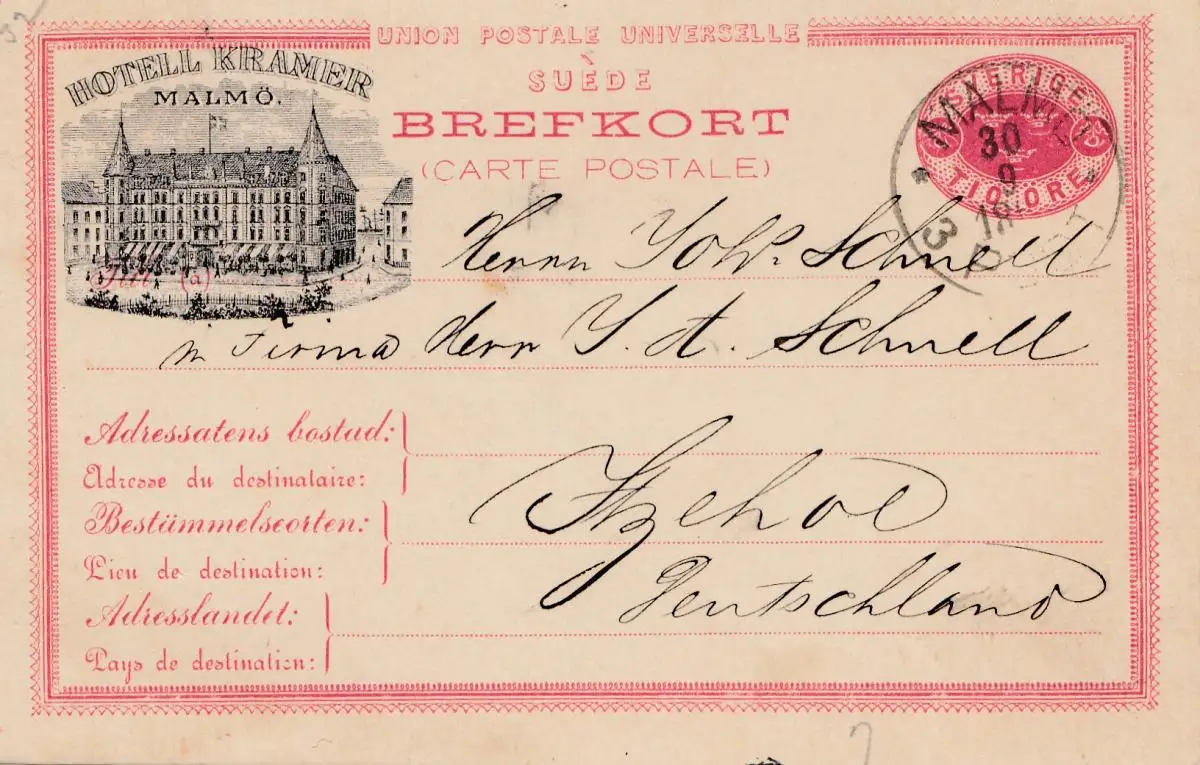 UNION POSTALE UNIVERSELLE
SUÈDE
BREFKORT
(CARTE POSTALE)
HOTELL KRAMER
MALMÖ.
SVERIGE
TIO ÖRE
MALMÖ
30
9
3
Till (à)
Herrn Johs. Schnell
in Firma Herrn J. H. Schnell
Adressatens bostad:
Adresse du destinataire:
Itzehoe
Bestämmelseorten:
Lieu de destination:
Deutschland
Adresslandet:
Pays de destination: